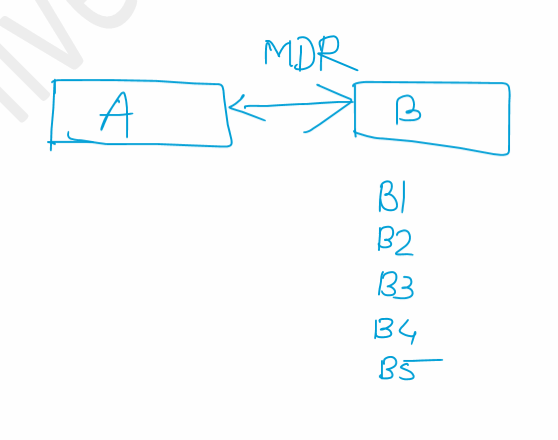 MDR
A B
B1
B2
B3
B4
B5